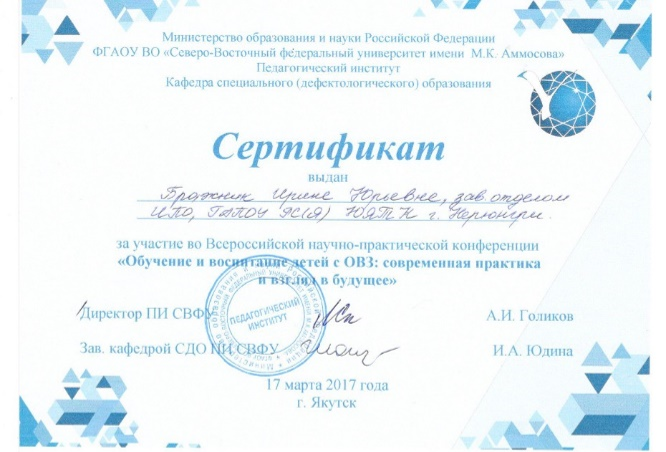 Министерство образования и науки Российской Федерации
ФГАОУ ВО «Северо-Восточный федеральный университет имени М.К. Аммосова»
Педагогический институт
Кафедра специального (дефектологического) образования
Сертификат
выдан
Бражник Ирине Юрьевне, зав. отделом
ИПО, ГАПОУ РС(Я) ЮЯТК г. Нерюнгри.
за участие во Всероссийской научно-практической конференции
«Обучение и воспитание детей с ОВЗ: современная практика
и взгляд в будущее»
ПЕДАГОГИЧЕСКИЙ
ИНСТИТУТ
Директор ПИ СВФУ А.И. Голиков
Зав. кафедрой СДО ПИ СВФУ И.А. Юдина
17 марта 2017 года
г. Якутск